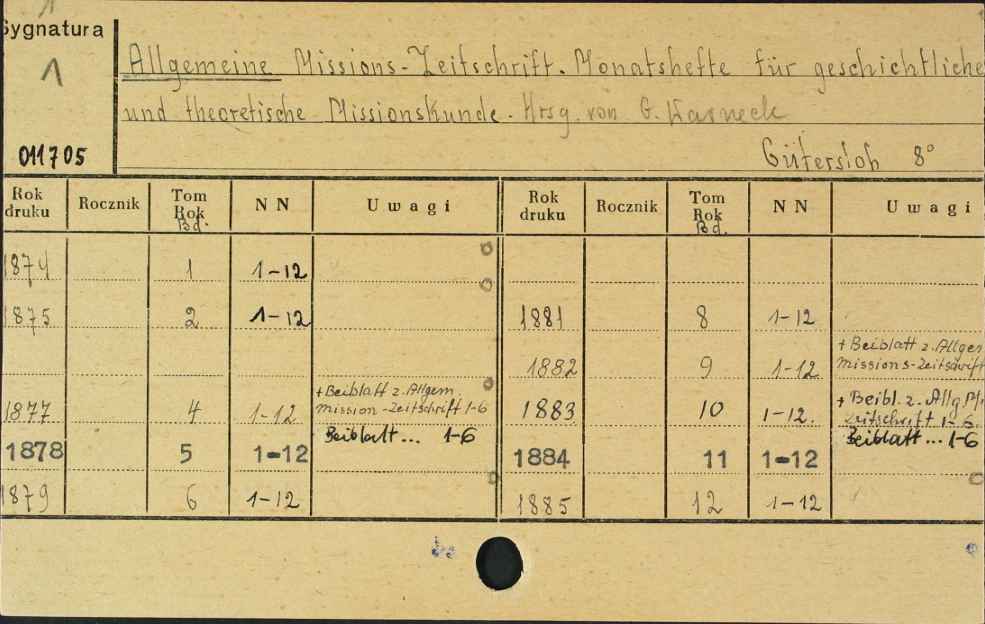 Sygnatura
1
011705
Allgemeine Missions-Zeitschrift. Monatshefte für geschichtliche
und theoretische Missionskunde. Hrsg. von G. Warneck
Gütersloh 8°
Rok druku Rocznik Tom Rok Bd. NN Uwagi Rok druku Rocznik Tom Rok Bd. NN Uwagi
1874 1 1-12
1875 2 1-12 1881 8 1-12
1882 9 1-12 + Beiblatt z. Allgem Missions-Zeitschrift
1877 4 1-12 + Beiblatt z. Allgem. Mission-Zeitschrift 1-6 1883 10 1-12. + Beibl. z. Allg. Zeitschrift 1-6
1878 5 1-12 Beiblatt... 1-6 1884 11 1-12 Beiblatt... 1-6
1879 6 1-12 1885 12 1-12